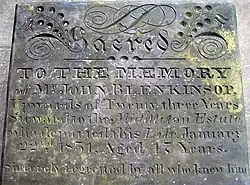 Sacred
TO THE MEMORY
of Mr. JOHN BLENKINSOP,
Upwards of Twenty-three Years
Steward to the Middleton Estate
who departed this Life January
22nd 1831. Aged 47 Years.
Sincerely regretted by all who knew him